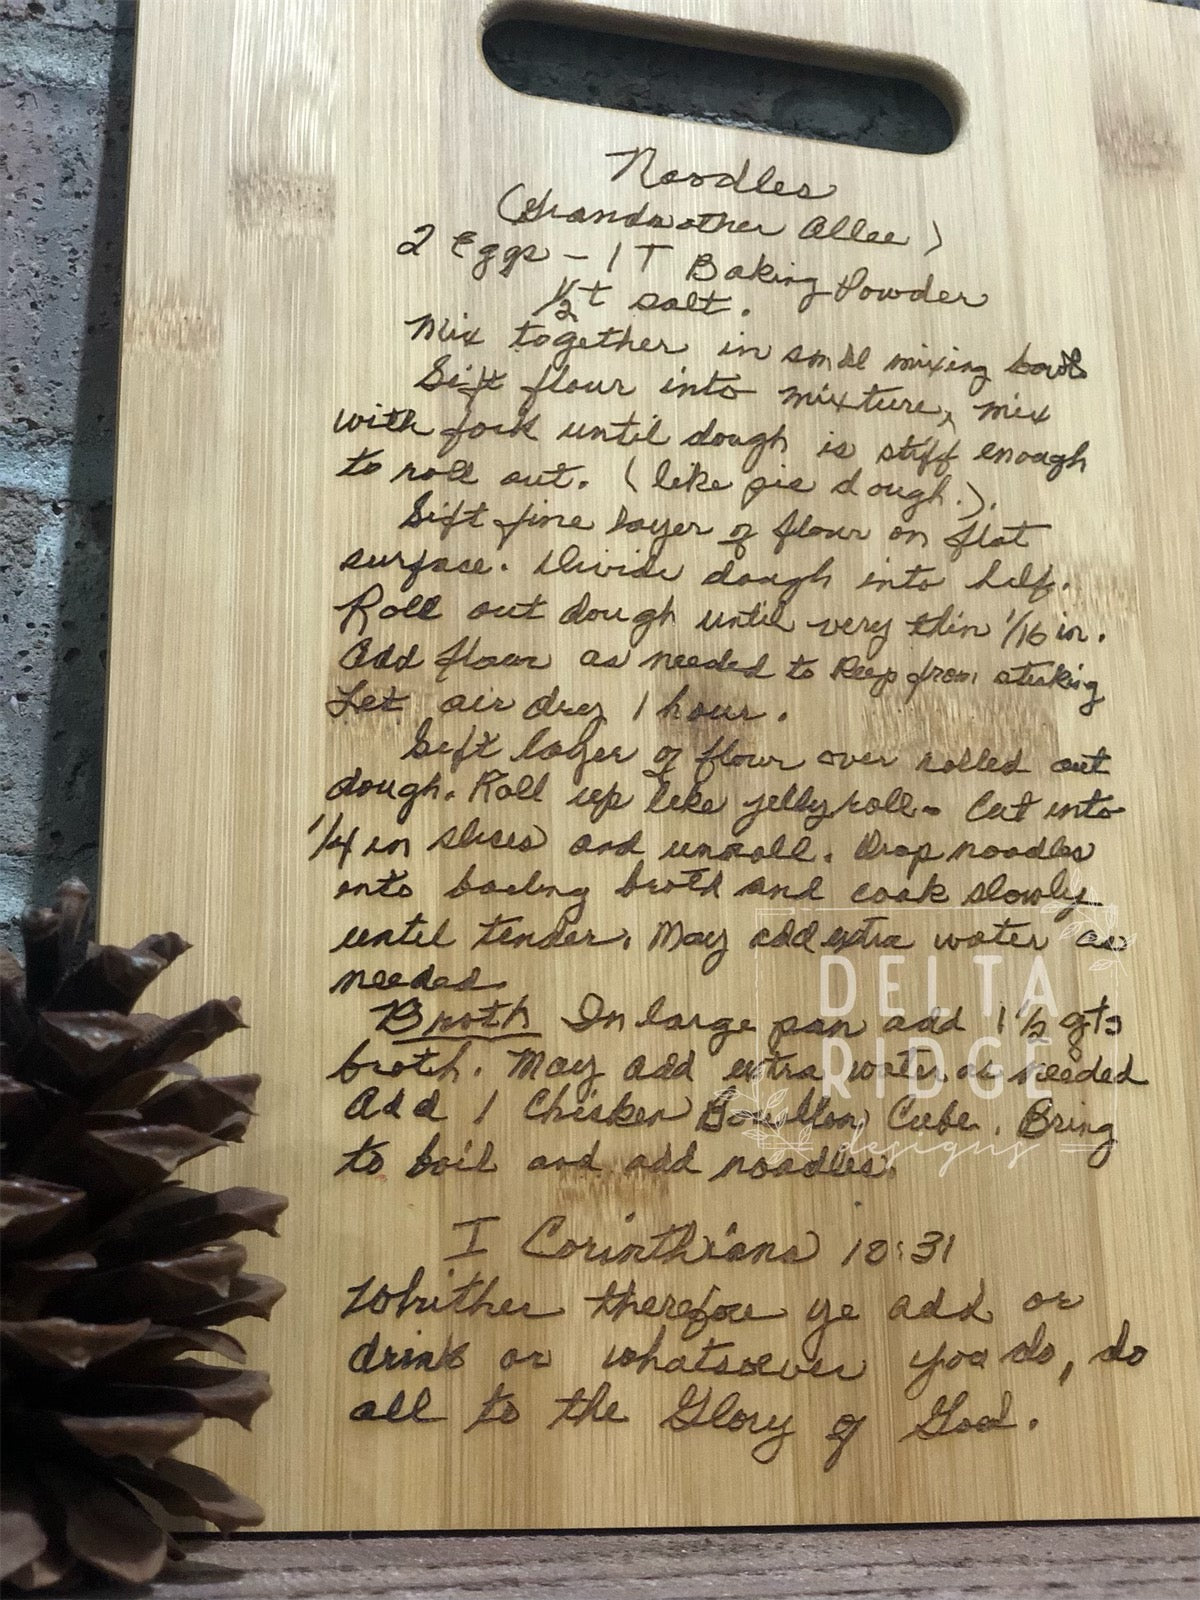 Noodles
(Grandmother Allee)
2 Eggs - 1 T Baking Powder
1/2 t salt.
Mix together in small mixing bowl
Sift flour into mixture, mix
with fork until dough is stiff enough
to roll out. (like pie dough.).
Sift fine layer of flour on flat
surface. Divide dough into half.
Roll out dough until very thin 1/16 in.
Add flour as needed to keep from sticking
Let air dry 1 hour.
Sift layer of flour over rolled out
dough. Roll up like jelly roll - Cut into
1/4 in slices and unroll. Drop noodles
into boiling broth and cook slowly
until tender. May add extra water as
needed.
Broth In large pan add 1 1/2 qts
broth. May add extra water as needed
Add 1 Chicken Bouillon Cube. Bring
to boil and add noodles.
I Corinthians 10:31
Whither therefore ye add or
drink or whatsoever you do, do
all to the Glory of God.
DELTA
RIDGE
designs